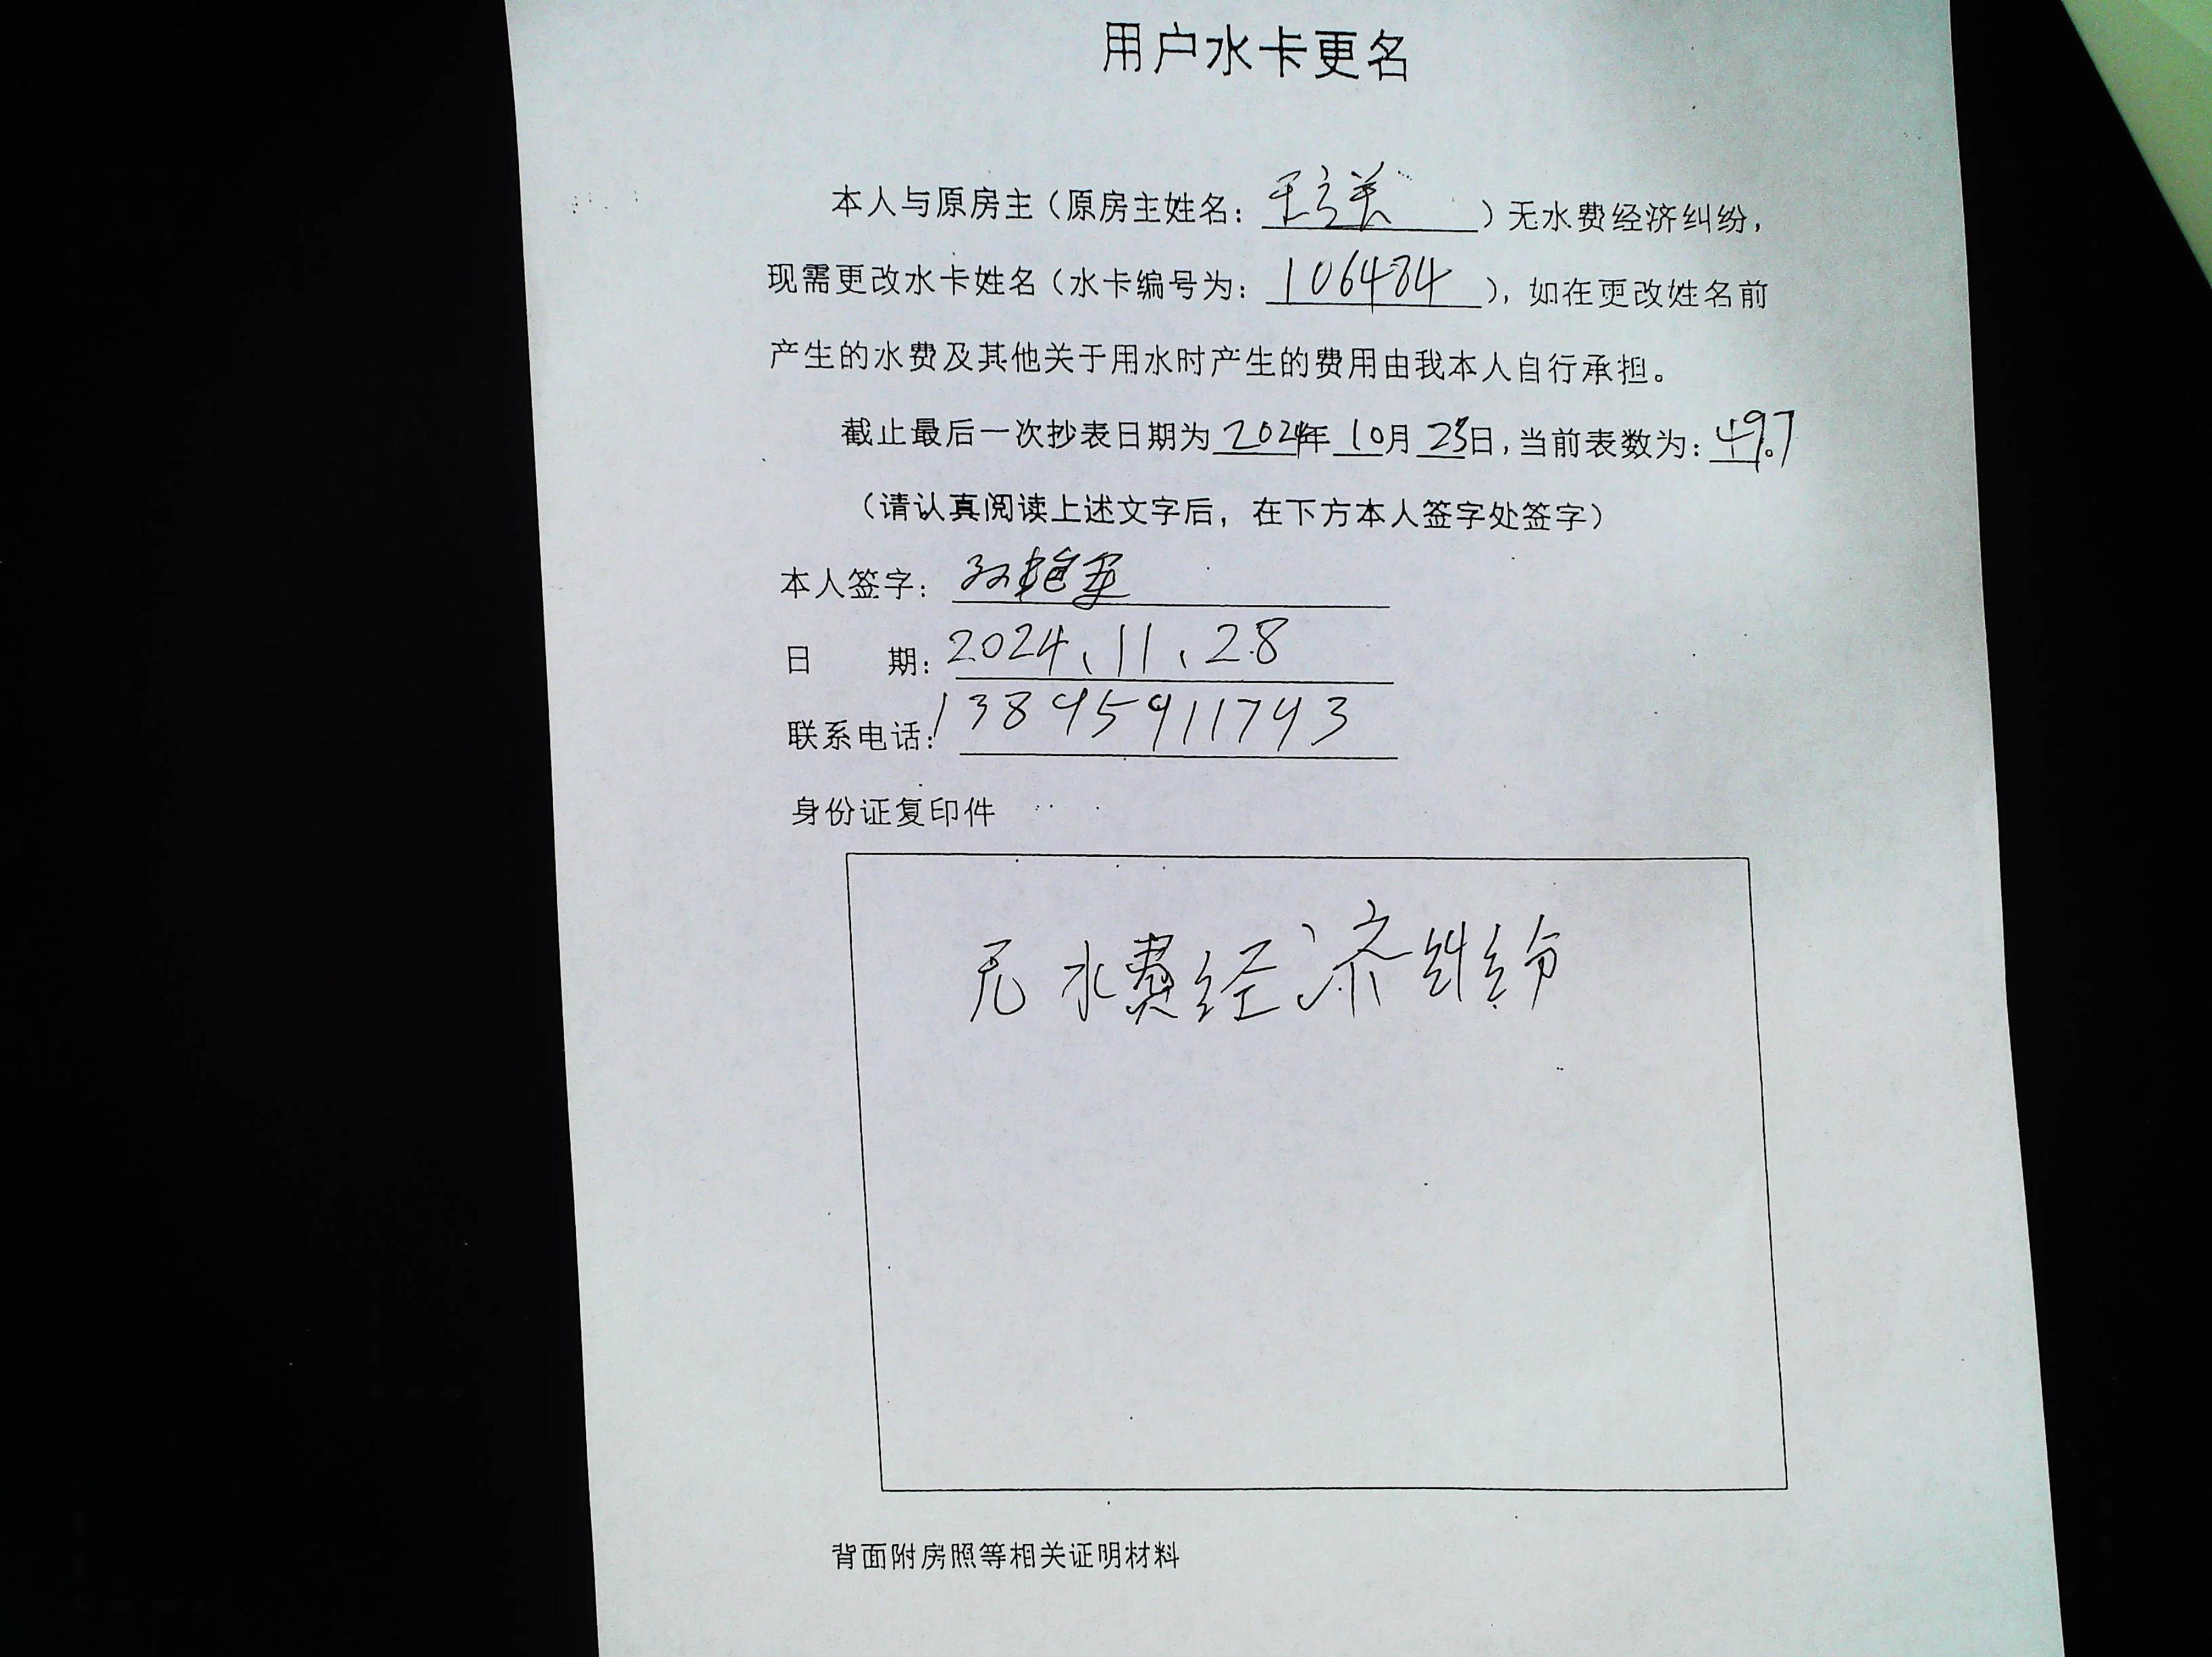 用户水卡更名
本人与原房主（原房主姓名：王立美）无水费经济纠纷，
现需更改水卡姓名（水卡编号为：106484），如在更改姓名前
产生的水费及其他关于用水时产生的费用由我本人自行承担。
截止最后一次抄表日期为2024年10月23日，当前表数为：497
（请认真阅读上述文字后，在下方本人签字处签字）
本人签字：孙艳
日　　期：2024、11、28
联系电话：13895911793
身份证复印件
无水费经济纠纷
背面附房照等相关证明材料